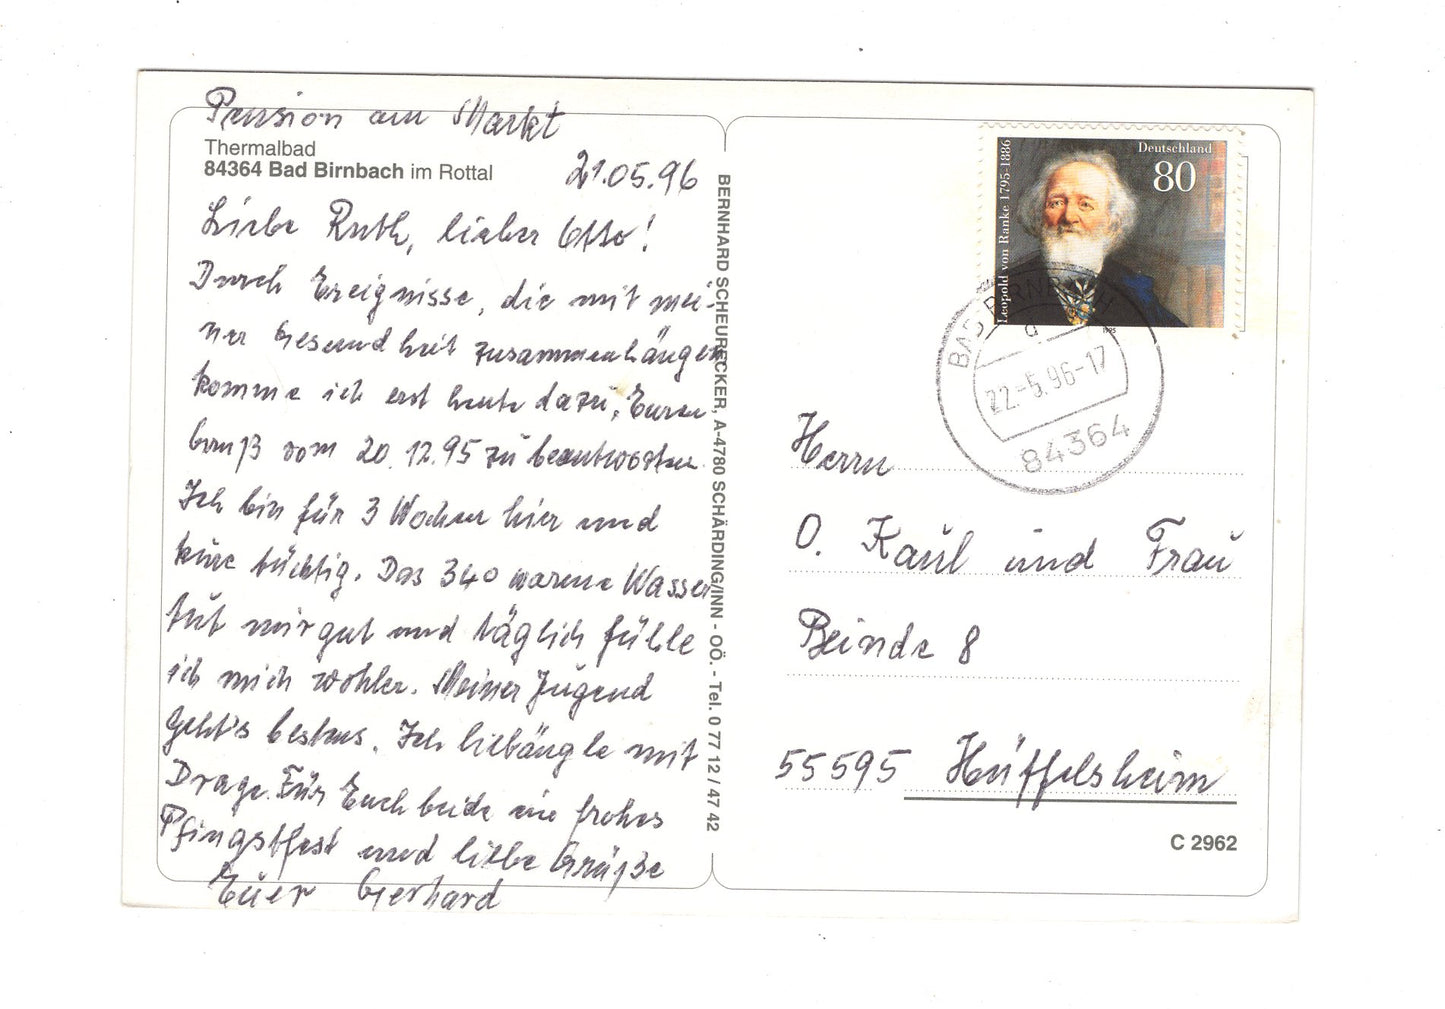 Pension am Markt
Thermalbad
84364 Bad Birnbach im Rottal
21.05.96
Liebe Ruth, lieber Otto!
Durch Ereignisse, die mit mei-
ner Gesundheit zusammenhängen
komme ich erst heute dazu, Euren
Gruß vom 20.12.95 zu beantworten.
Ich bin für 3 Wochen hier und
kure tüchtig. Das 34° warme Wasser
tut mir gut und täglich fühle
ich mich wohler. Meiner Jugend
geht's bestens. Ich liebäugle mit
Drage. Für Euch beide ein frohes
Pfingstfest und liebe Grüße
Euer Gerhard
BERNHARD SCHEURECKER, A-4780 SCHÄRDING/INN - OÖ. - Tel. 0 77 12 / 47 42
Leopold von Ranke 1795-1886
Deutschland
80
1995
BAD BIRNBACH
a
22.-5.96-17
84364
Herrn
O. Kaul und Frau
Beinde 8
55595 Hüffelsheim
C 2962